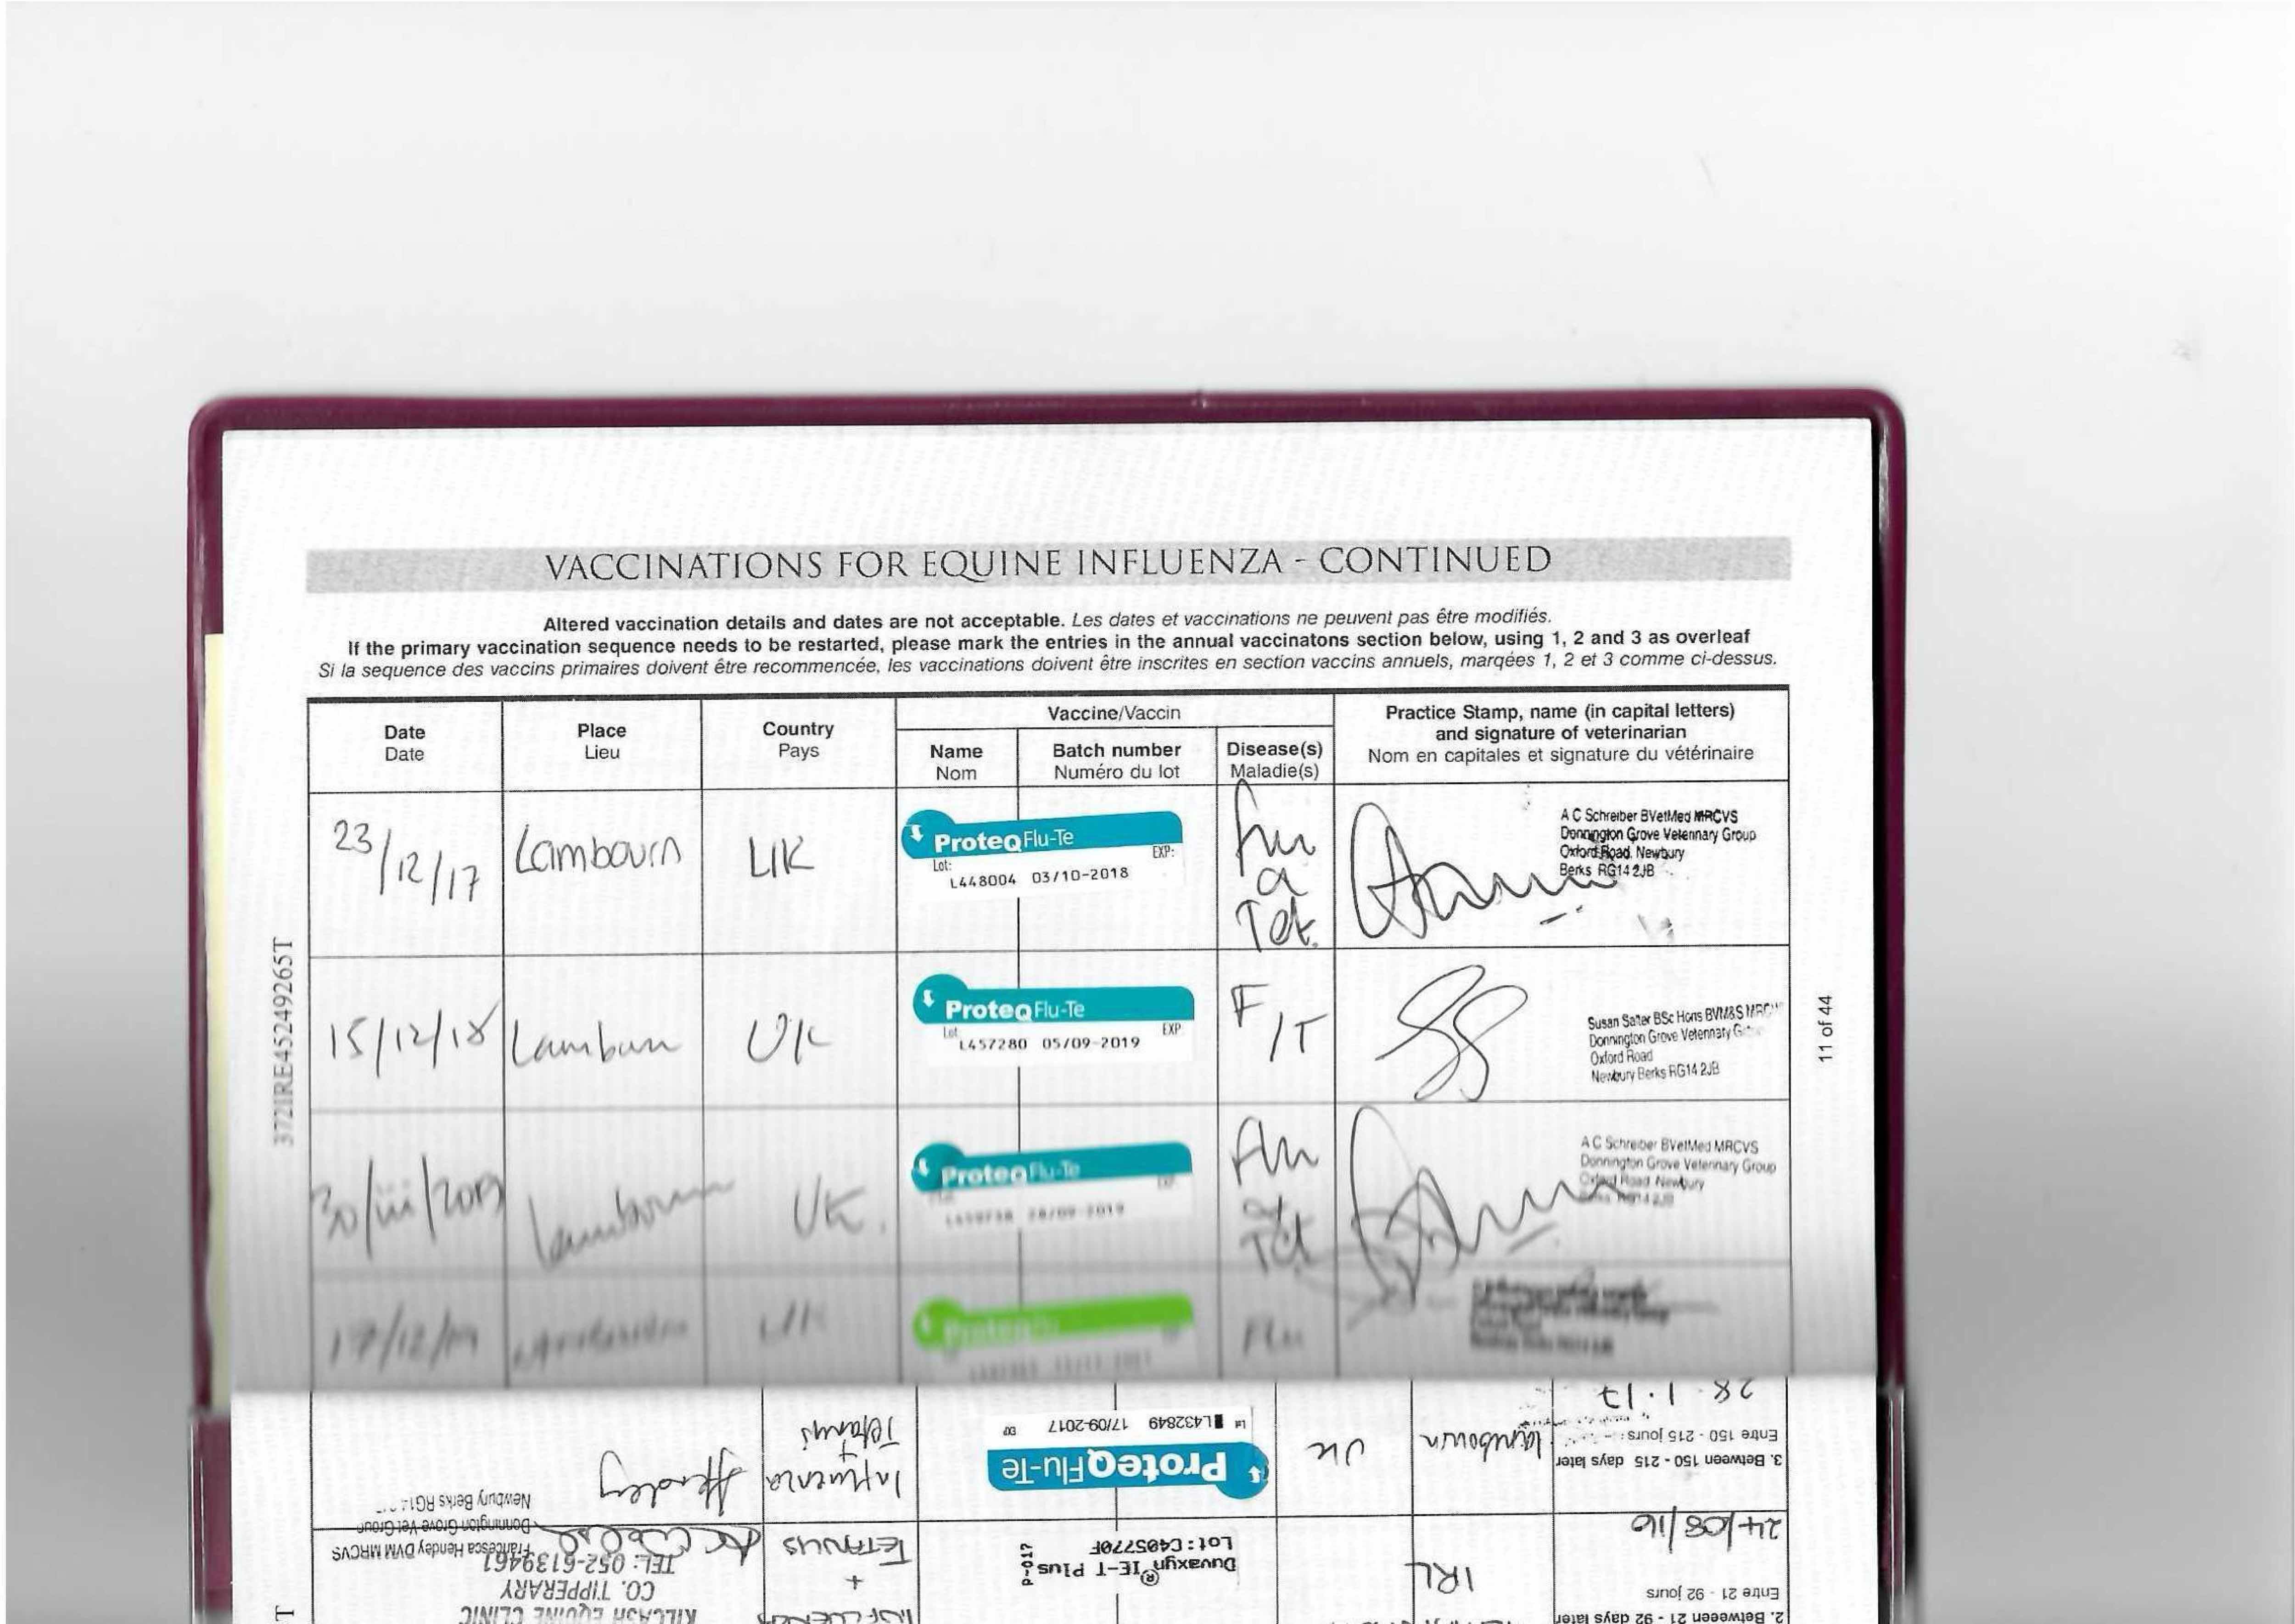 VACCINATIONS FOR EQUINE INFLUENZA - CONTINUED
Altered vaccination details and dates are not acceptable. Les dates et vaccinations ne peuvent pas être modifiés.
If the primary vaccination sequence needs to be restarted, please mark the entries in the annual vaccinatons section below, using 1, 2 and 3 as overleaf
Si la sequence des vaccins primaires doivent être recommencée, les vaccinations doivent être inscrites en section vaccins annuels, marqées 1, 2 et 3 comme ci-dessus.
Date
Date
Place
Lieu
Country
Pays
Vaccine/Vaccin
Name
Nom
Batch number
Numéro du lot
Disease(s)
Maladie(s)
Practice Stamp, name (in capital letters)
and signature of veterinarian
Nom en capitales et signature du vétérinaire
23/12/17
Lambourn
UK
ProteqFlu-Te
Lot: EXP:
L448004 03/10-2018
Flu
Tet.
A C Schreiber BVetMed MRCVS
Donnington Grove Veterinary Group
Oxford Road, Newbury
Berks RG14 2JB
15/12/18
Lambourn
UK
ProteqFlu-Te
Lot EXP
L457280 05/09-2019
F/T
Susan Salter BSc Hons BVM&S
Donnington Grove Veterinary
Oxford Road
Newbury Berks RG14 2JB
30/iii/2019
Lambourn
UK.
ProteqFlu-Te
Flu
Tet
A C Schreiber BVetMed MRCVS
Donnington Grove Veterinary Group
Oxford Road, Newbury
17/12/19
UK
ProteqFlu
Flu
372IRE45249265T
11 of 44
2. Between 21 - 92 days later
Entre 21 - 92 jours
24/08/16
IRL
Duvaxyn® IE-T Plus
Lot: C405770F
P-017
+
TETANUS
KILCASH EQUINE CLINIC
CO. TIPPERARY
TEL: 052-6139461
3. Between 150 - 215 days later
Entre 150 - 215 jours
28.1.17
Lambourn
UK
ProteqFlu-Te
Lot L432849 17/09-2017
Influenza
Tetanus
Francesca Hendey DVM MRCVS
Donnington Grove Vet Group
Newbury Berks RG14